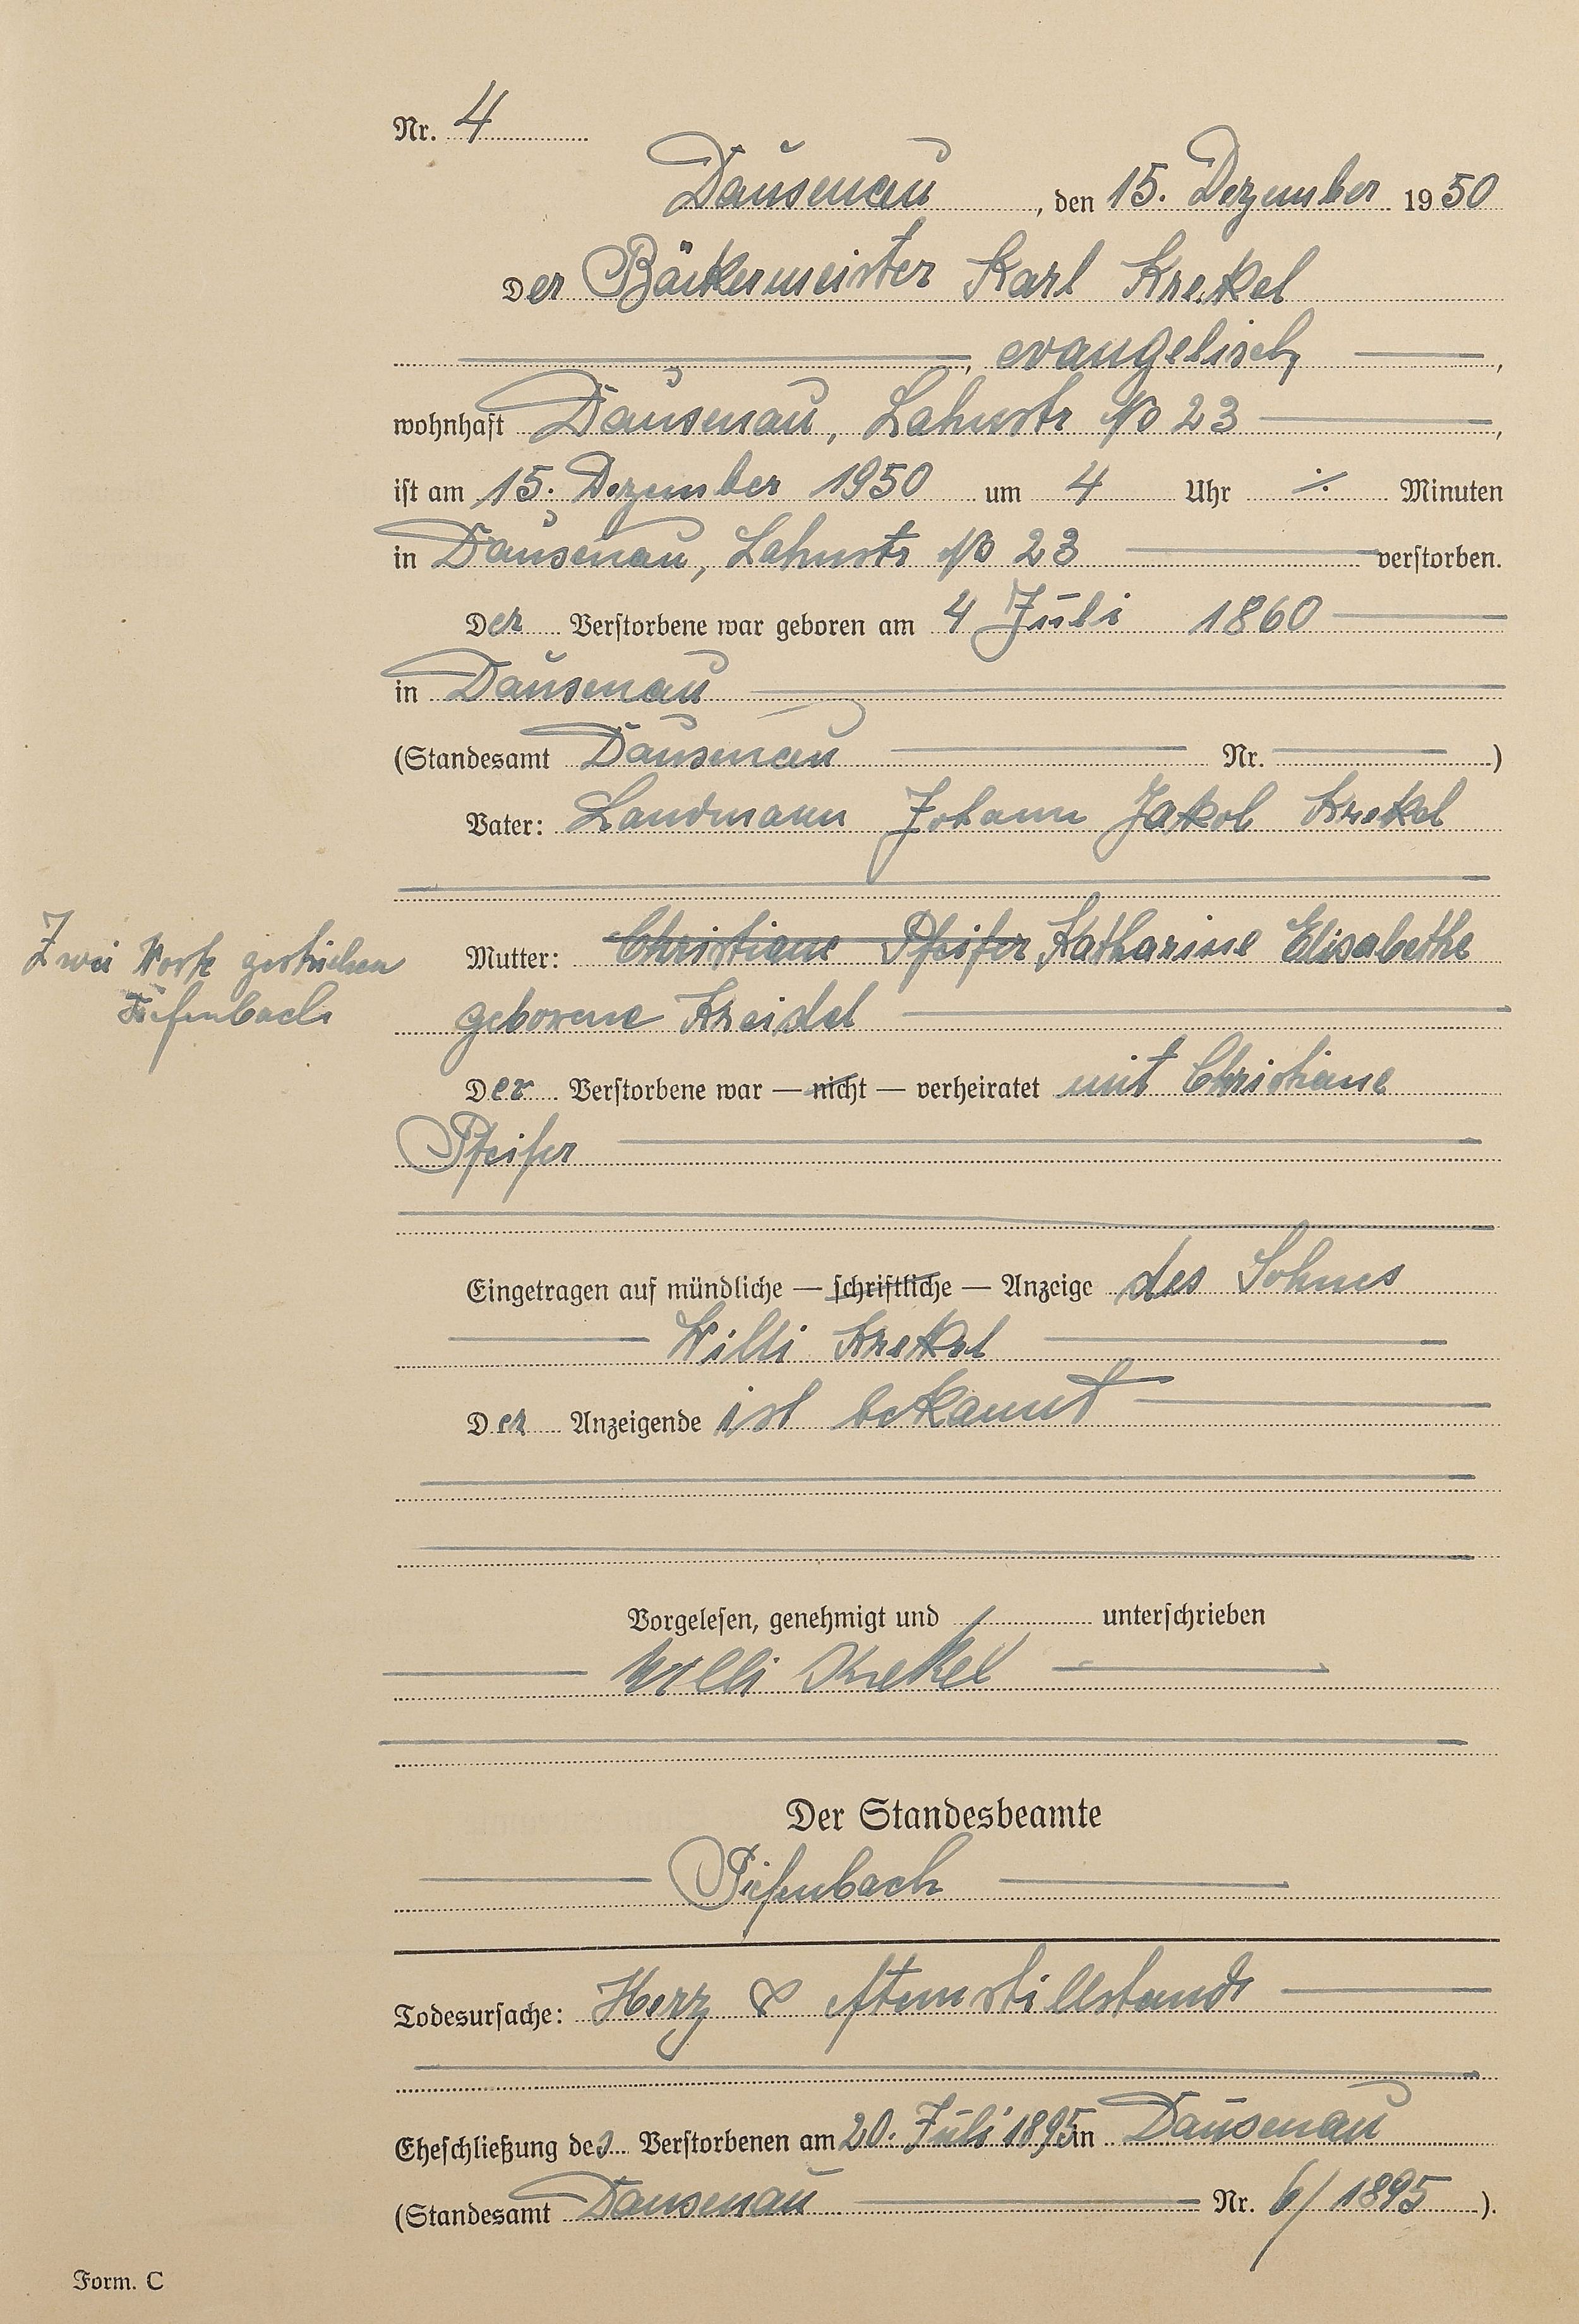 Nr. 4
Dausenau, den 15. Dezember 1950
Der Bäckermeister Karl Krekel
, evangelisch,
wohnhaft Dausenau, Lahnstr No 23,
ist am 15. Dezember 1950 um 4 Uhr ./. Minuten
in Dausenau, Lahnstr No 23 verstorben.
Der Verstorbene war geboren am 4 Juli 1860
in Dausenau
(Standesamt Dausenau Nr. )
Vater: Landmann Johann Jakob Krekel
Zwei Worte gestrichen
Tiefenbach
Mutter: Christiane Pfeifer Katharine Elisabethe
geborene Kreidel
Der Verstorbene war — nicht — verheiratet mit Christiane
Pfeifer
Eingetragen auf mündliche — schriftliche — Anzeige des Sohnes
Willi Krekel
Der Anzeigende ist bekannt
Vorgelesen, genehmigt und unterschrieben
Willi Krekel
Der Standesbeamte
Tiefenbach
Todesursache: Herz & Atemstillstand
Eheschließung des Verstorbenen am 20. Juli 1895 in Dausenau
(Standesamt Dausenau Nr. 6/1895 ).
Form. C